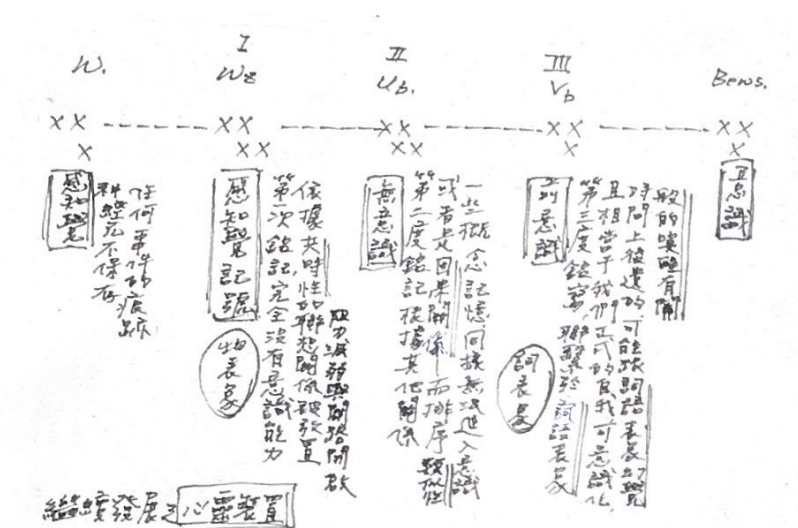 W.
I
Wz
II
Ub.
III
Vb
Bews.
感知覺
任何事件的痕跡
神經元不保存
感知覺記號
第一次銘記完全沒有意識能力
依據共時性的聯想關係被放置
阻力減弱與開路開啟
物表象
無意識
第二度銘記根據其他關係
或者是因果關係而排序 類似性
一些概念記憶，同樣無法進入意識
前意識
第三度銘寫，聯繫於詞語表象
且相當于我們正式的自我可意識化，
時間上後遺的，可能跟詞語表象幻覺
般的喚醒有關
詞表象
意識
繼續發展之心靈裝置